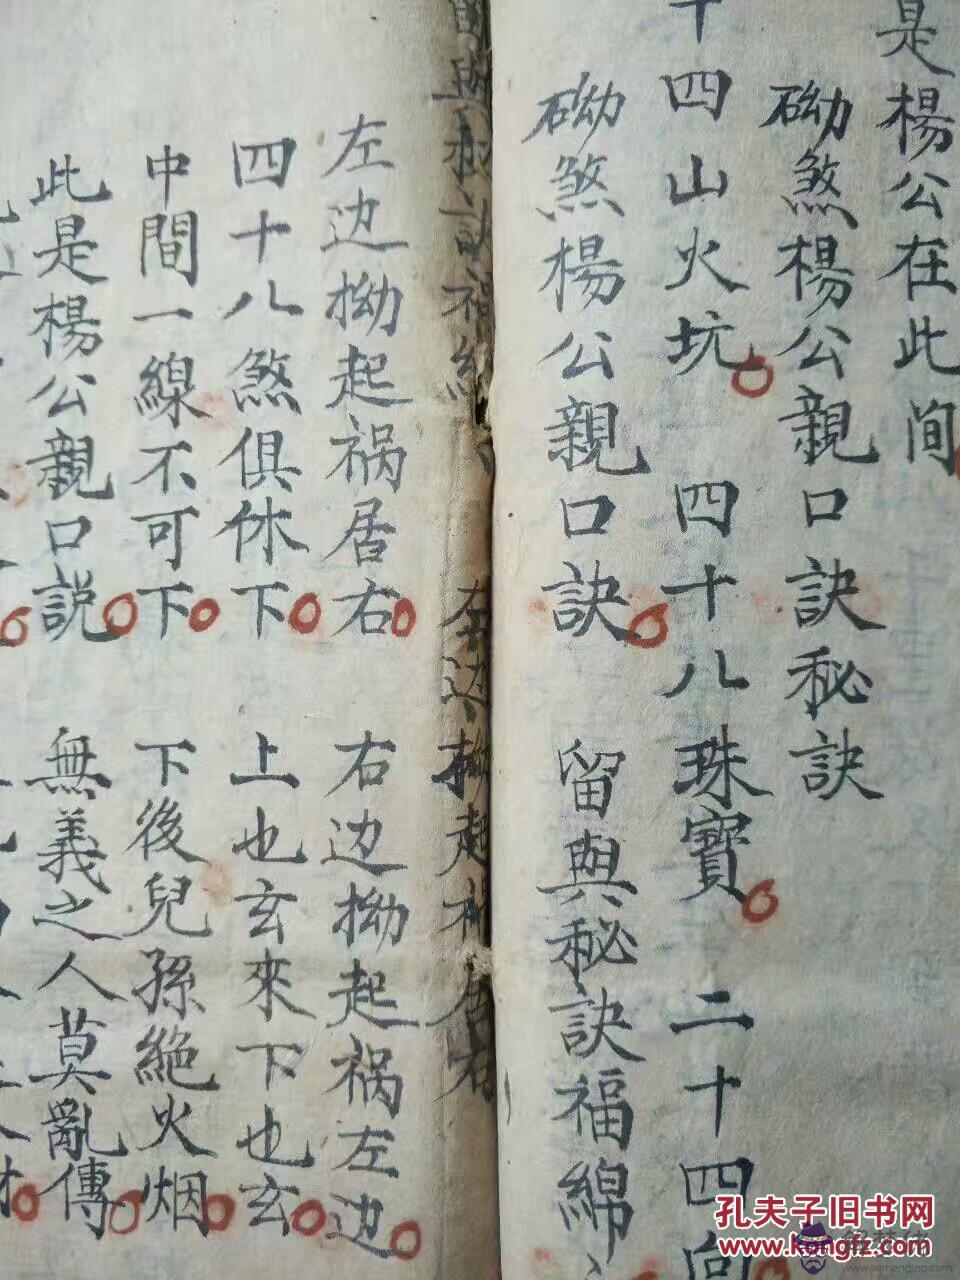 是楊公在此间
磡煞楊公親口訣秘訣
十四山火坑 四十八珠寶 二十四向
磡煞楊公親口訣 留與秘訣福綿
左边拗起祸居右 右边拗起祸左边
四十八煞俱休下 上也玄來下也玄
中間一線不可下 下後兒孫絶火烟
此是楊公親口説 無義之人莫亂傳
孔夫子旧书网
www.kongfz.com